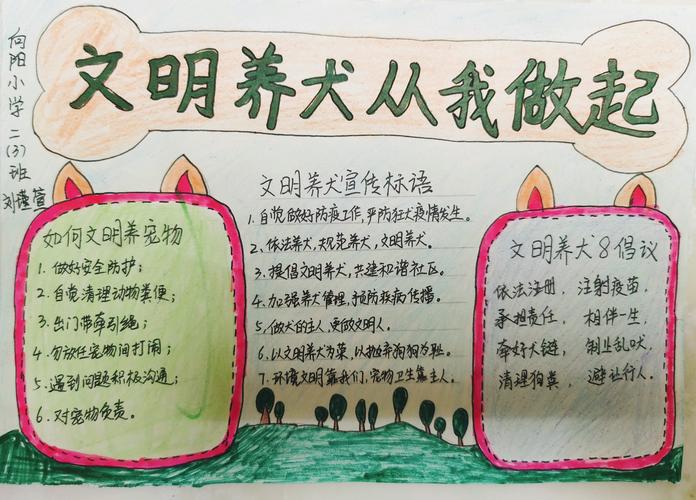 文明养犬从我做起
向阳小学二(3)班
刘瑾萱
如何文明养宠物
1. 做好安全防护;
2. 自觉清理动物粪便;
3. 出门带牵引绳;
4. 勿放任宠物间打闹;
5. 遇到问题积极沟通;
6. 对宠物负责。
文明养犬宣传标语
1. 自觉做好防疫工作,严防狂犬疫情发生。
2、依法养犬,规范养犬,文明养犬。
3、提倡文明养犬,共建和谐社区。
4、加强养犬管理,预防疾病传播。
5、做犬的主人,更做文明人。
6、以文明养犬为荣,以抛弃狗狗为耻。
7、环境文明靠我们,宠物卫生靠主人。
文明养犬8倡议
依法注册, 注射疫苗,
承担责任, 相伴一生,
牵好犬链, 制止乱吠,
清理狗粪, 避让行人.